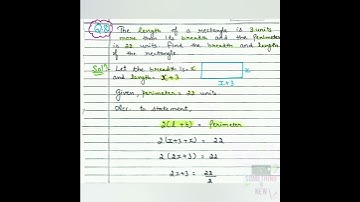 Q.8) The length of a rectangle is 3 units
more than its breadth and the perimeter
is 22 units. Find the breadth and length
of the rectangle.
Solⁿ: Let the breadth is = x
and length = x+3
x
x+3
Given, perimeter = 22 units
Acc. to statement,
2(l+b) = Perimeter
2(x+3+x) = 22
2(2x+3) = 22
2x+3 = 22/2
SOMETHING
NEW